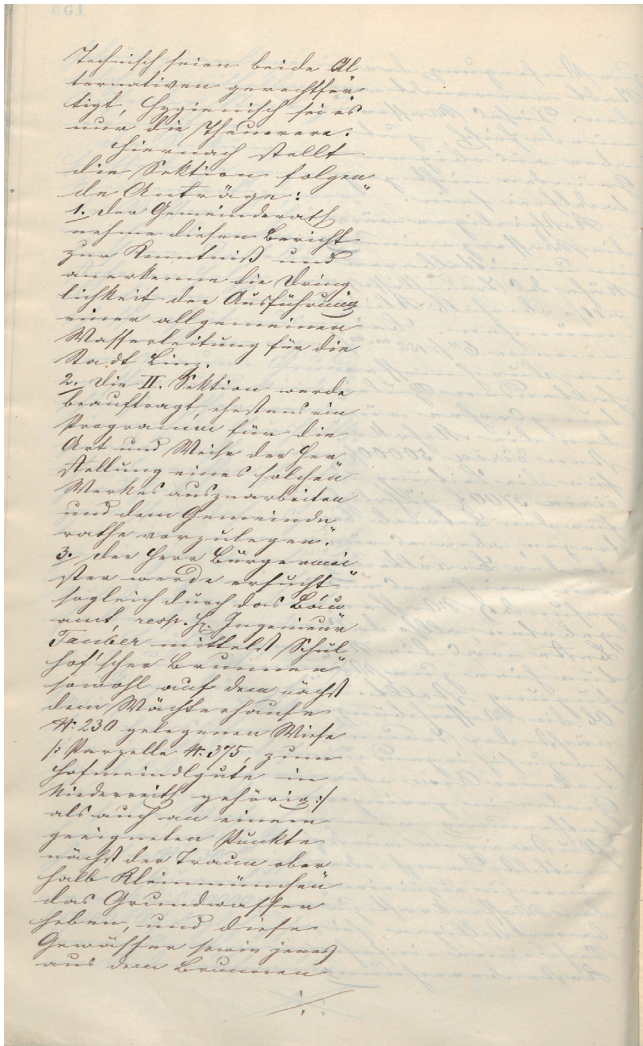 Technisch seien beide Al
ternativen gerechtfer
tigt, hygienisch sei es
nur die Theurere.
Hiernach stellt
die Sektion folgen
de Anträge:
1. Der Gemeinderath
nehme diesen Bericht
zur Kenntniß und
anerkenne die Dring
lichkeit der Ausführung
einer allgemeinen
Wasserleitung für die
Stadt Linz.
2. Die II. Sektion werde
beauftragt, ehestens ein
Programm für die
Art und Weise der Her
stellung eines solchen
Werkes auszuarbeiten
und dem Gemeinde
rathe vorzulegen.
3. Der Herr Bürgermei
ster werde ersucht
sogleich durch das Bau
amt, resp. H. Ingenieur
Tauber mittelst Schul
hof'scher Brunnen
sowohl auf dem nächst
dem Wächterhause
N: 230 gelegenen Wiese
/: Parzelle N: 375, zum
Hofmeindlgute in
Niederreith gehörig :/
als auch an einem
geeigneten Punkte
nächst der Traun ober
halb Kleinmünchen
das Grundwasser
heben, und diese
Gewässer sowie jenes
aus dem Brunnen
./.